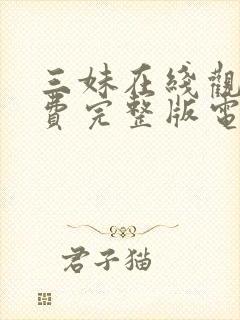 三妹在綫觀
費完整版電
君子猫